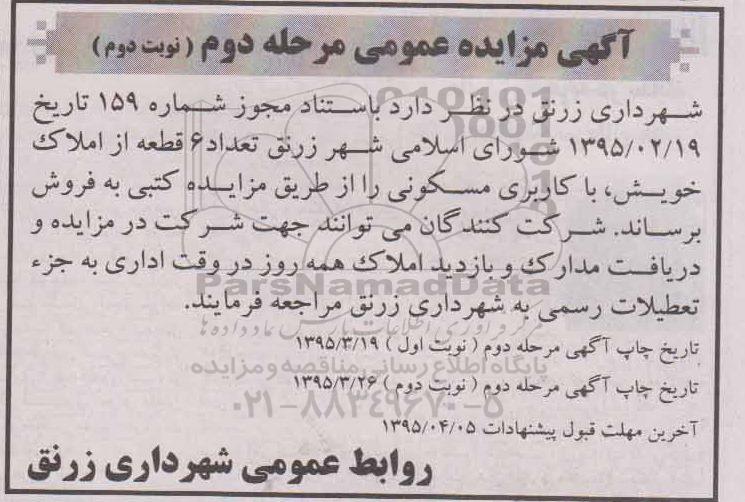 آگهی مزایده عمومی مرحله دوم ( نوبت دوم )
شهرداری زرنق در نظر دارد باستناد مجوز شماره ۱۵۹ تاریخ
۱۳۹۵/۰۲/۱۹ شورای اسلامی شهر زرنق تعداد ۶ قطعه از املاک
خویش، با کاربری مسکونی را از طریق مزایده کتبی به فروش
برساند. شرکت کنندگان می توانند جهت شرکت در مزایده و
دریافت مدارک و بازدید املاک همه روز در وقت اداری به جزء
ParsNamadData
تعطیلات رسمی به شهرداری زرنق مراجعه فرمایند.
تاریخ چاپ آگهی مرحله دوم ( نوبت اول ) ۱۳۹۵/۳/۱۹
پایگاه اطلاع رسانی مناقصه و مزایده
تاریخ چاپ آگهی مرحله دوم ( نوبت دوم ) ۱۳۹۵/۳/۲۶
۰۲۱-۸۸۳۴۹۶۷۰-۵
آخرین مهلت قبول پیشنهادات ۱۳۹۵/۰۴/۰۵
روابط عمومی شهرداری زرنق